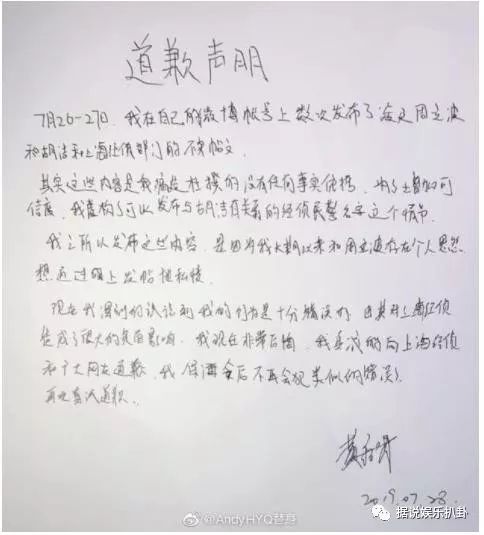 道歉声明
7月26-27日,我在自己的微博帐号上数次发布了涉及周立波
和胡洁和上海经侦部门的不实帖文
其实这些内容是我编造杜撰的没有任何事实依据,为了增加可
信度,我虚构了可以发布与胡洁有关系的经侦民警名字这个情节.
我之所以发布这些内容,是因为我长期以来和周立波存在个人恩怨
想通过网上发帖泄私愤
现在我深刻的认识到我的行为是十分错误的,尤其对上海经侦
造成了很大的负面影响,我现在非常后悔,我真诚的向上海经侦
和广大网友道歉,我保证今后不再会犯类似的错误
再次真诚道歉.
2019.07.28.
@AndyHYQ替身
据说娱乐扒卦